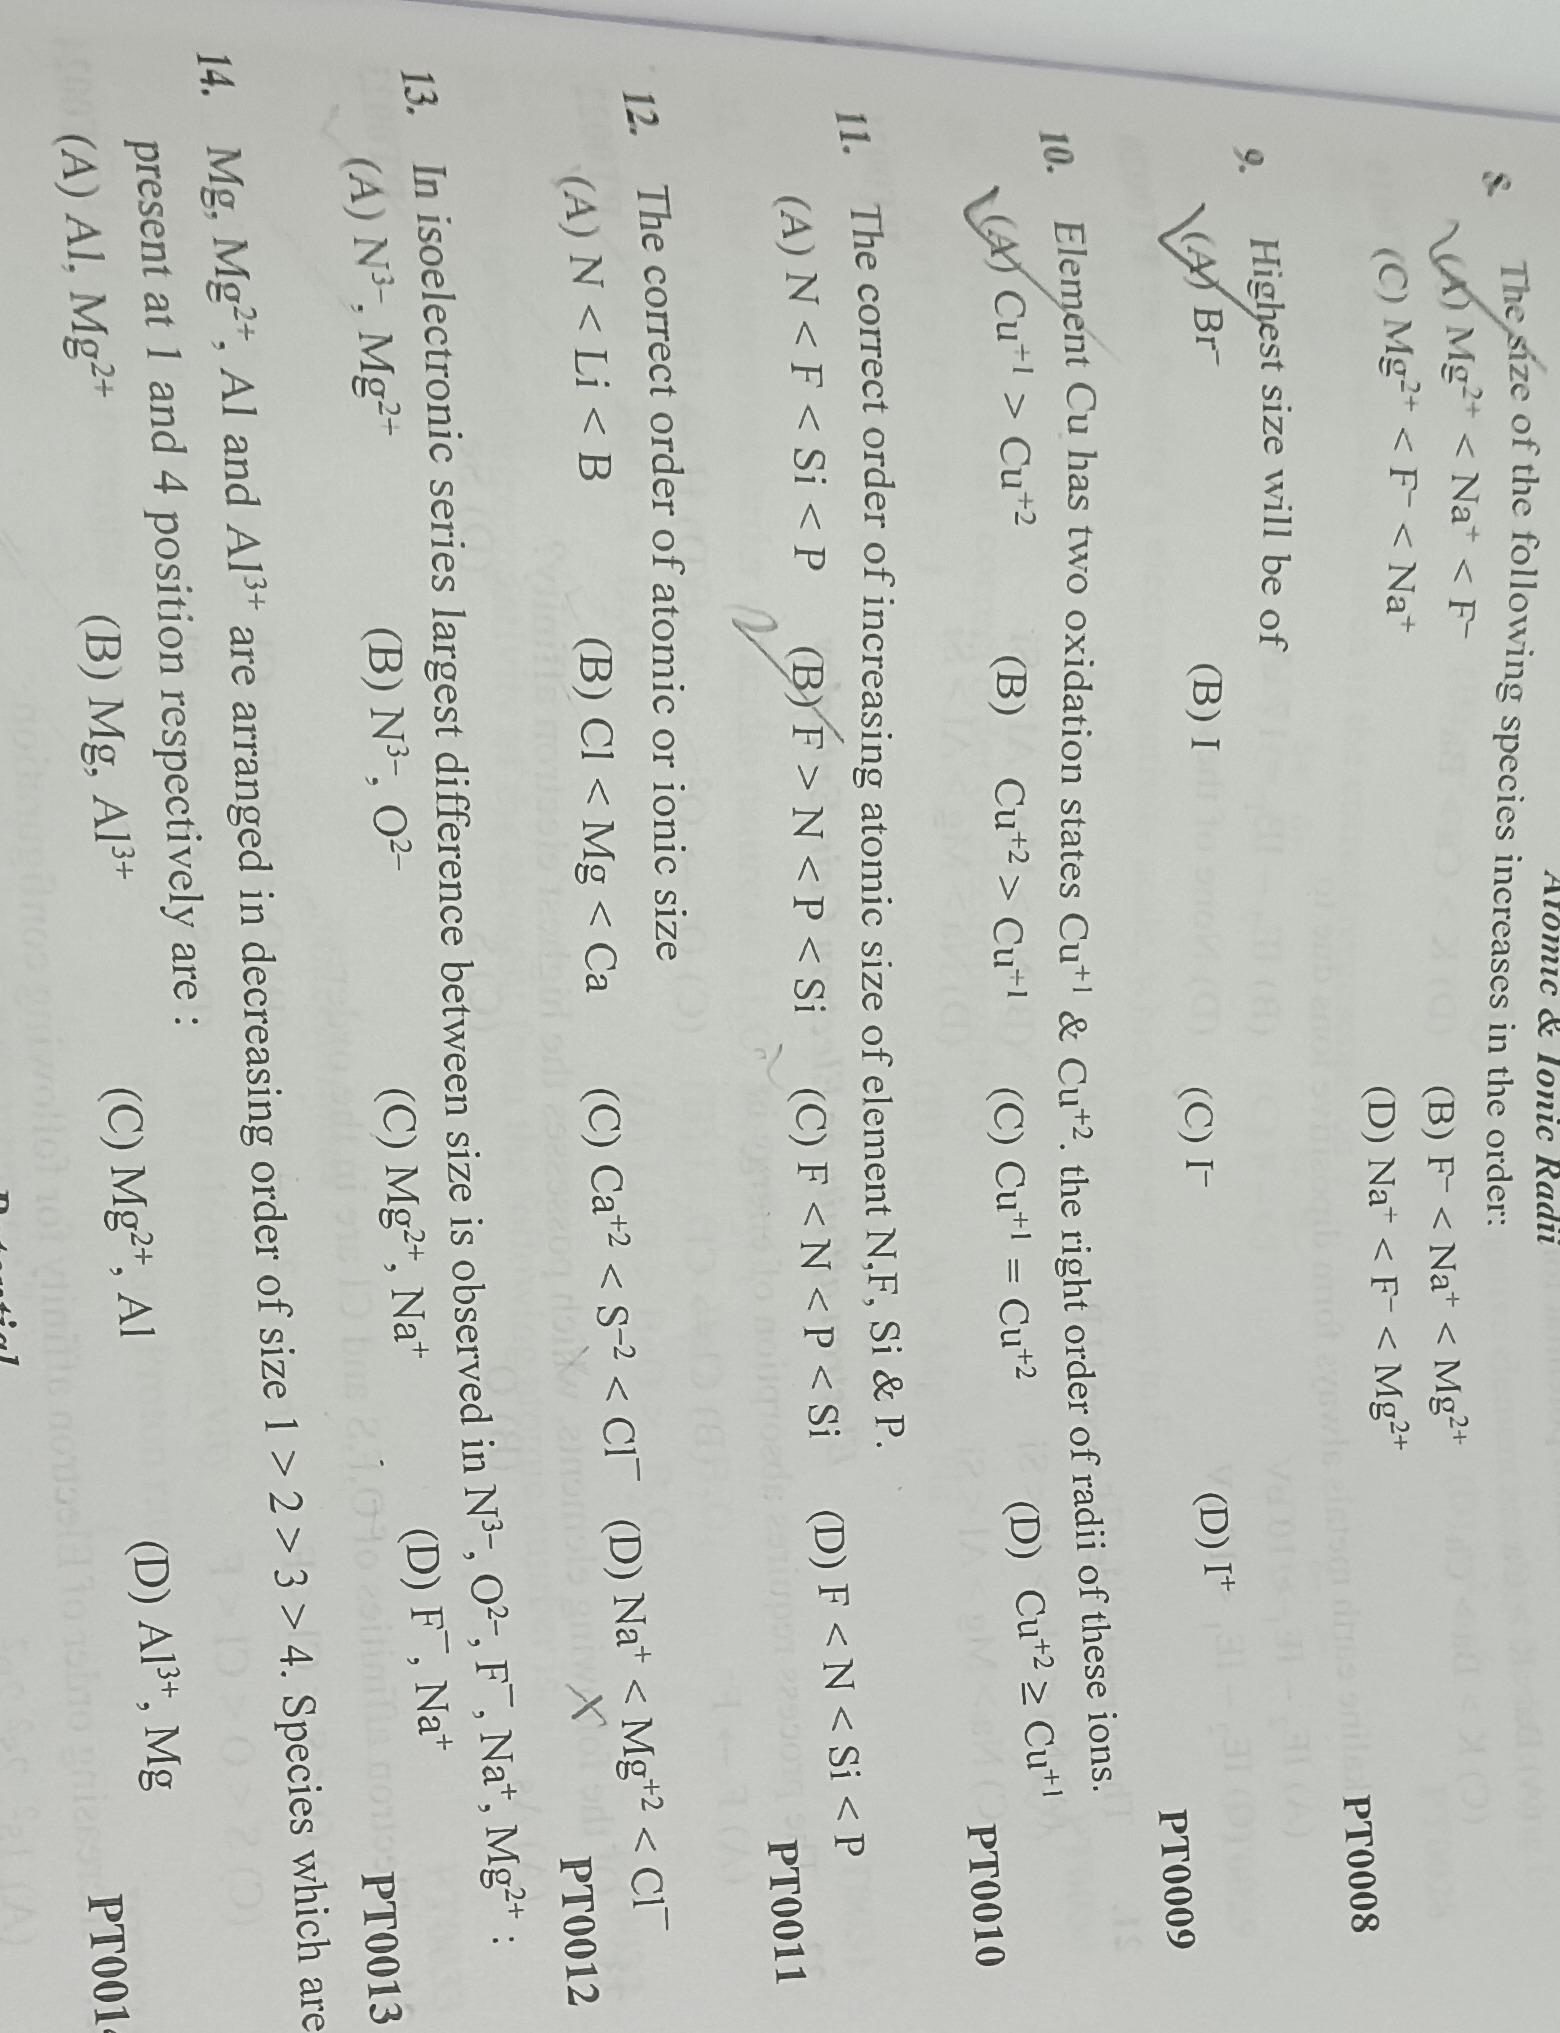 Atomic & Ionic Radii
8. The size of the following species increases in the order:
(A) Mg²⁺ < Na⁺ < F⁻ (B) F⁻ < Na⁺ < Mg²⁺
(C) Mg²⁺ < F⁻ < Na⁺ (D) Na⁺ < F⁻ < Mg²⁺
PT0008
9. Highest size will be of
(A) Br⁻ (B) I (C) I⁻ (D) I⁺
PT0009
10. Element Cu has two oxidation states Cu⁺¹ & Cu⁺². the right order of radii of these ions.
(A) Cu⁺¹ > Cu⁺² (B) Cu⁺² > Cu⁺¹ (C) Cu⁺¹ = Cu⁺² (D) Cu⁺² ≥ Cu⁺¹
PT0010
11. The correct order of increasing atomic size of element N,F, Si & P.
(A) N < F < Si < P (B) F > N < P < Si (C) F < N < P < Si (D) F < N < Si < P
PT0011
12. The correct order of atomic or ionic size
(A) N < Li < B (B) Cl < Mg < Ca (C) Ca⁺² < S⁻² < Cl⁻ (D) Na⁺ < Mg⁺² < Cl⁻
PT0012
13. In isoelectronic series largest difference between size is observed in N³⁻, O²⁻, F⁻, Na⁺, Mg²⁺ :
(A) N³⁻, Mg²⁺ (B) N³⁻, O²⁻ (C) Mg²⁺, Na⁺ (D) F⁻, Na⁺
PT0013
14. Mg, Mg²⁺, Al and Al³⁺ are arranged in decreasing order of size 1 > 2 > 3 > 4. Species which are
present at 1 and 4 position respectively are :
(A) Al, Mg²⁺ (B) Mg, Al³⁺ (C) Mg²⁺, Al (D) Al³⁺, Mg